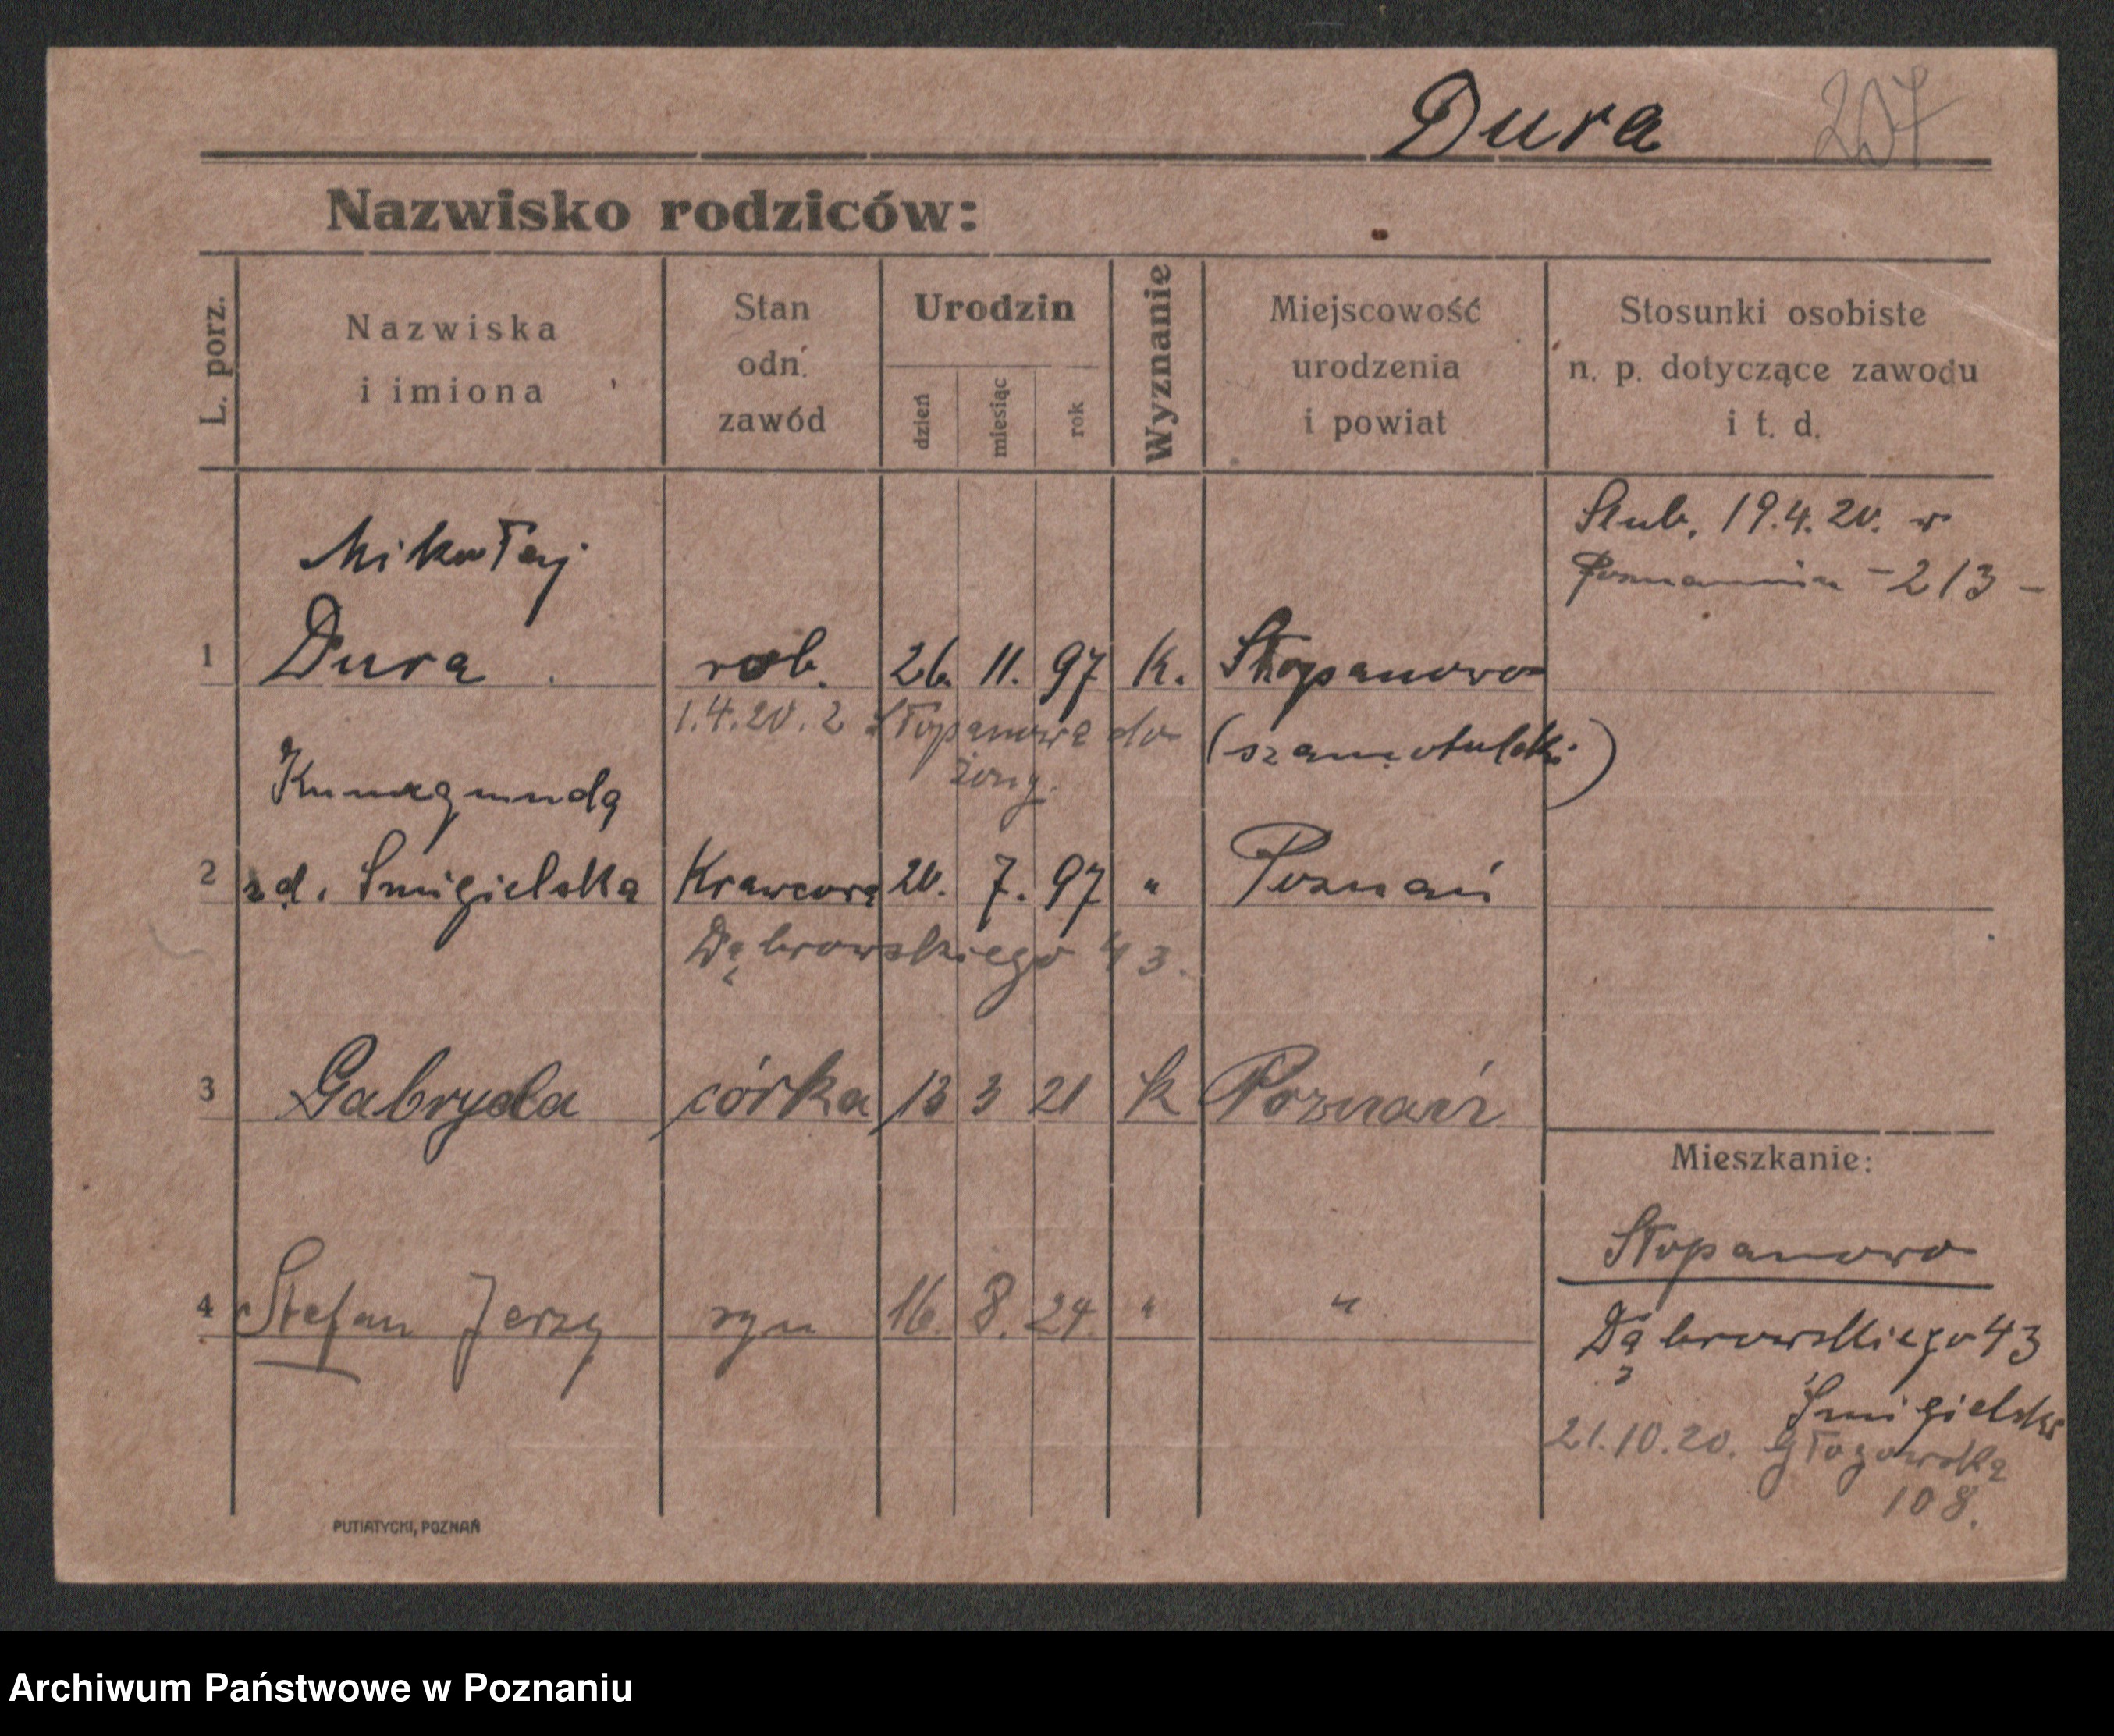 Dura 207
Nazwisko rodziców:
L. porz.
Nazwiska
i imiona
Stan
odn.
zawód
Urodzin
dzień
miesiąc
rok
Wyznanie
Miejscowość
urodzenia
i powiat
Stosunki osobiste
n. p. dotyczące zawodu
i t. d.
Ślub. 19.4.20. w
Poznaniu - 213 -
Mikołaj
1 Dura rob. 26. 11. 97 k. Stopanowo
1.4.20. z Stopanowa do (szamotulski)
żony.
Kunegunda
2 zd. Śmigielska Krawcowa 20. 7. 97 " Poznań
Dąbrowskiego 43.
3 Gabryela córka 13 3 21 k Poznań
Mieszkanie:
Stopanowo
4 Stefan Jerzy syn 16. 8. 24. " "
Dąbrowskiego 43
Śmigielska
21.10.20. Głogowska
108.
PUTIATYCKI, POZNAŃ
Archiwum Państwowe w Poznaniu